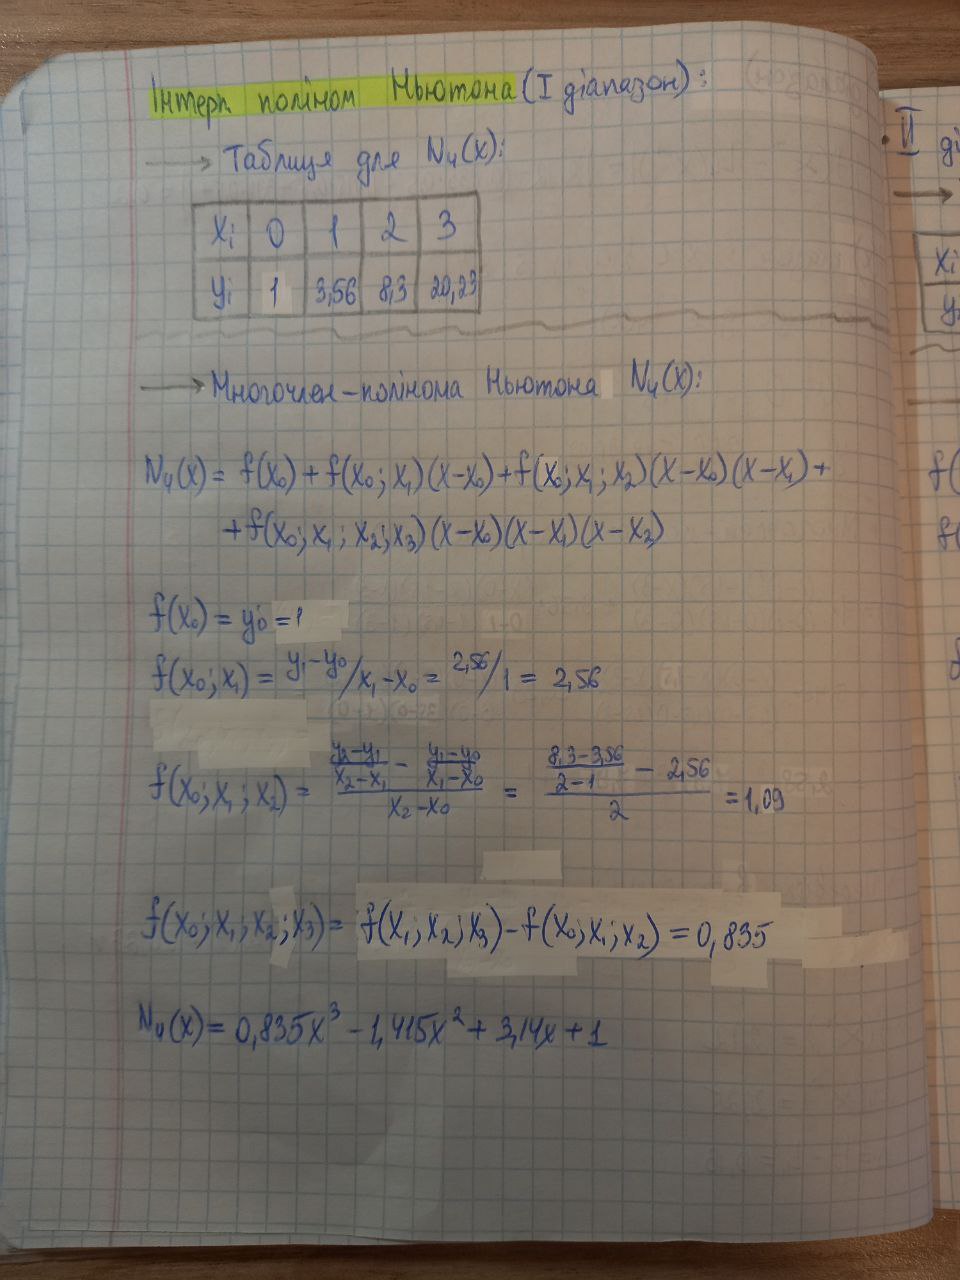 Інтерп. поліном Ньютона (I діапазон):
→ Таблиця для N₄(x):
xᵢ 0 1 2 3
yᵢ 1 3,56 8,3 20,23
→ Многочлен-полінома Ньютона N₄(x):
N₄(x) = f(x₀) + f(x₀; x₁)(x-x₀) + f(x₀; x₁; x₂)(x-x₀)(x-x₁) +
+ f(x₀; x₁; x₂; x₃)(x-x₀)(x-x₁)(x-x₂)
f(x₀) = y₀ = 1
f(x₀; x₁) = y₁-y₀/x₁-x₀ = 2,56/1 = 2,56
f(x₀; x₁; x₂) = ((y₂-y₁)/(x₂-x₁) - (y₁-y₀)/(x₁-x₀))/(x₂-x₀) = ((8,3-3,56)/(2-1) - 2,56)/2 = 1,09
f(x₀; x₁; x₂; x₃) = f(x₁; x₂; x₃) - f(x₀; x₁; x₂) = 0,835
N₄(x) = 0,835x³ - 1,415x² + 3,14x + 1
II
xᵢ